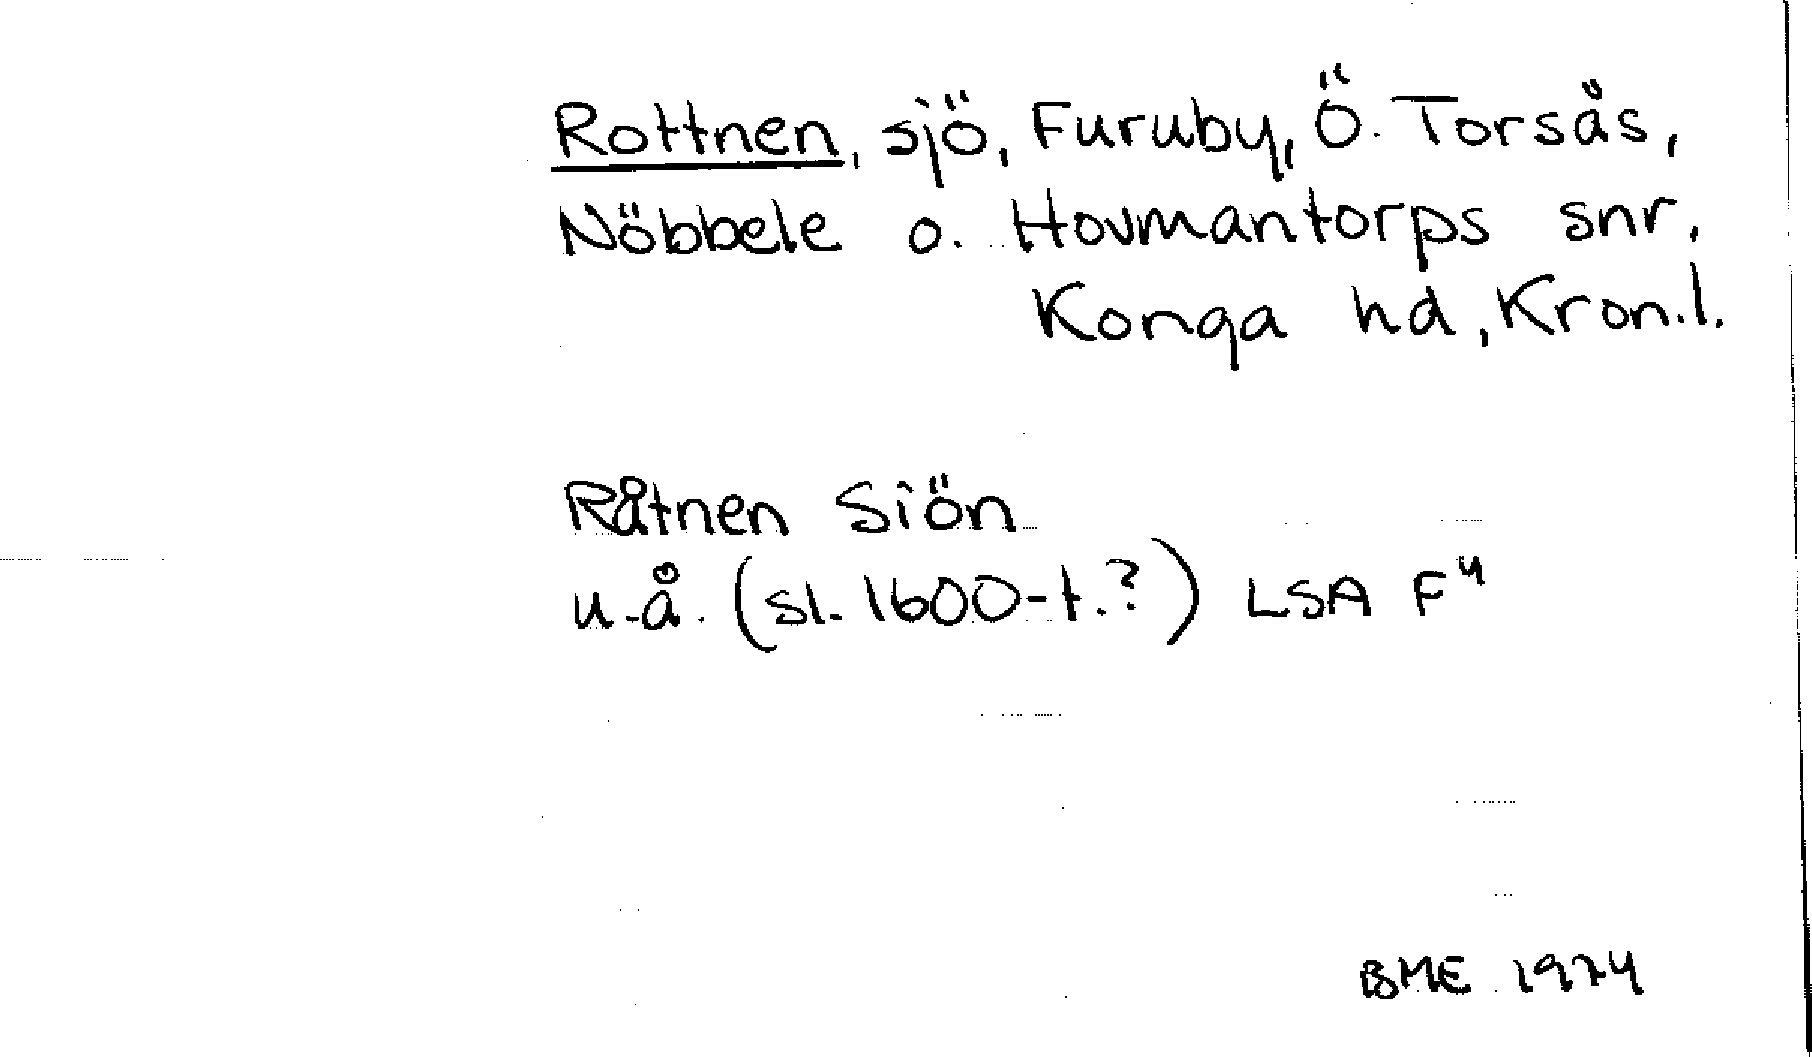 Rottnen, sjö, Furuby, Ö. Torsås,
Nöbbele o. Hovmantorps snr,
Konga hd, Kron.l.
Råtnen Siön
u.å. (sl. 1600-t.?) LSA F⁴
BME 1974